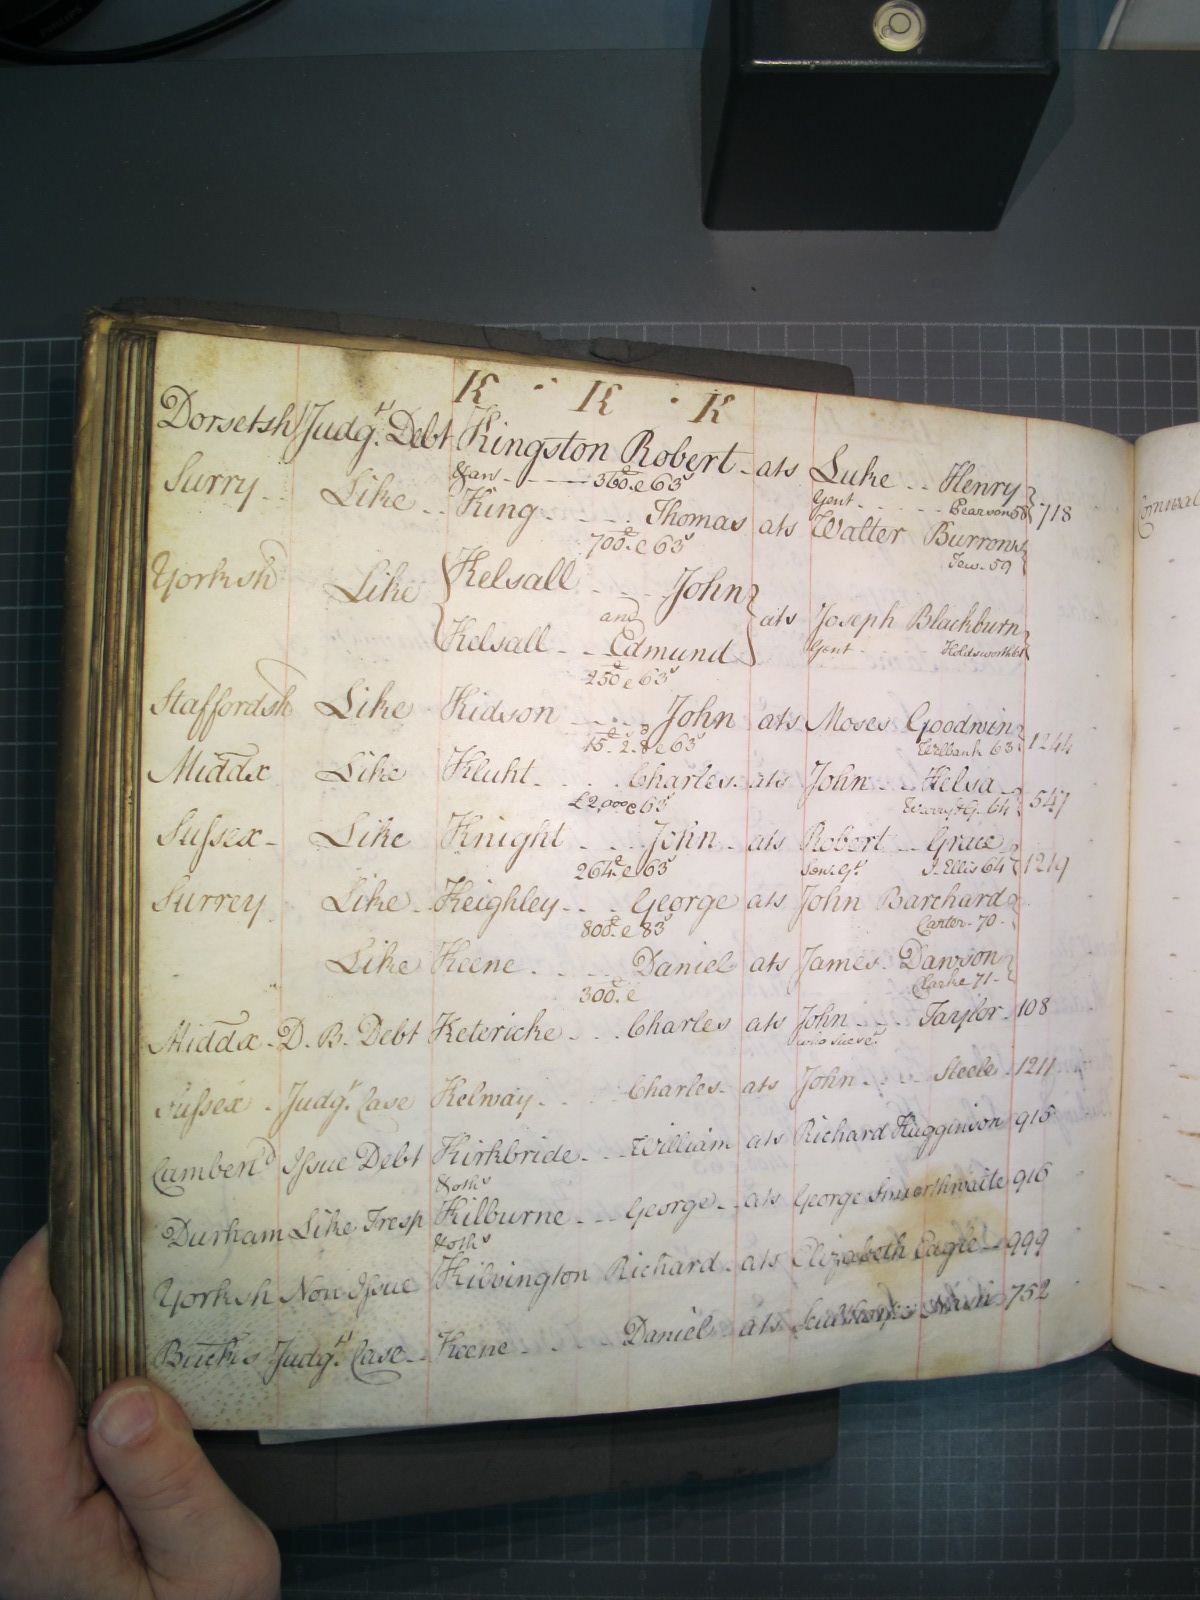 K · K · K
Dorsetsh Judgt. Debt Kingston Robert - ats Luke - Henry
&an - 360£ e 63s Gent - Pearson 58 718
Surry - Like - King - Thomas ats Walter Burrows
700£ e 63s Tew - 59
Yorksh Like Kelsall - John
and ats Joseph Blackburn
Kelsall - Edmund Gent - Holdsworth 61
250£ e 63s
Staffordsh Like Kidson - John ats Moses Goodwin
15£ 2s 8d e 63s Welbank 63 1244
Middx Like Kluht - Charles - ats John - Kelsa
£2,000 e 63s 64 547
Sussex - Like Knight - John - ats Robert - Grace
264£ e 63s Senr. Gt. J. Ellis 64 1219
Surrey Like - Keighley - George ats John Barchard
800£ e 83s Carter - 70 -
Like Keene - Daniel ats James - Dawson
300£ e Clarke 71 -
Middx - D. B. Debt Ketericke - Charles ats John - Taylor - 108
who sues &c.
Sussex - Judgt. Case Kelway - Charles - ats John - Steele - 1211
Cumberld Issue Debt Kirkbride - William ats Richard Hugginson 915
&oths
Durham Like Tresp Kilburne - George - ats George Smurthwaite 916
&oths
Yorksh Non Issue Kilvington Richard - ats Elizabeth Eagle - 999
Bucks Judgt. Case - Keene - Daniel ats 752
Cornwal